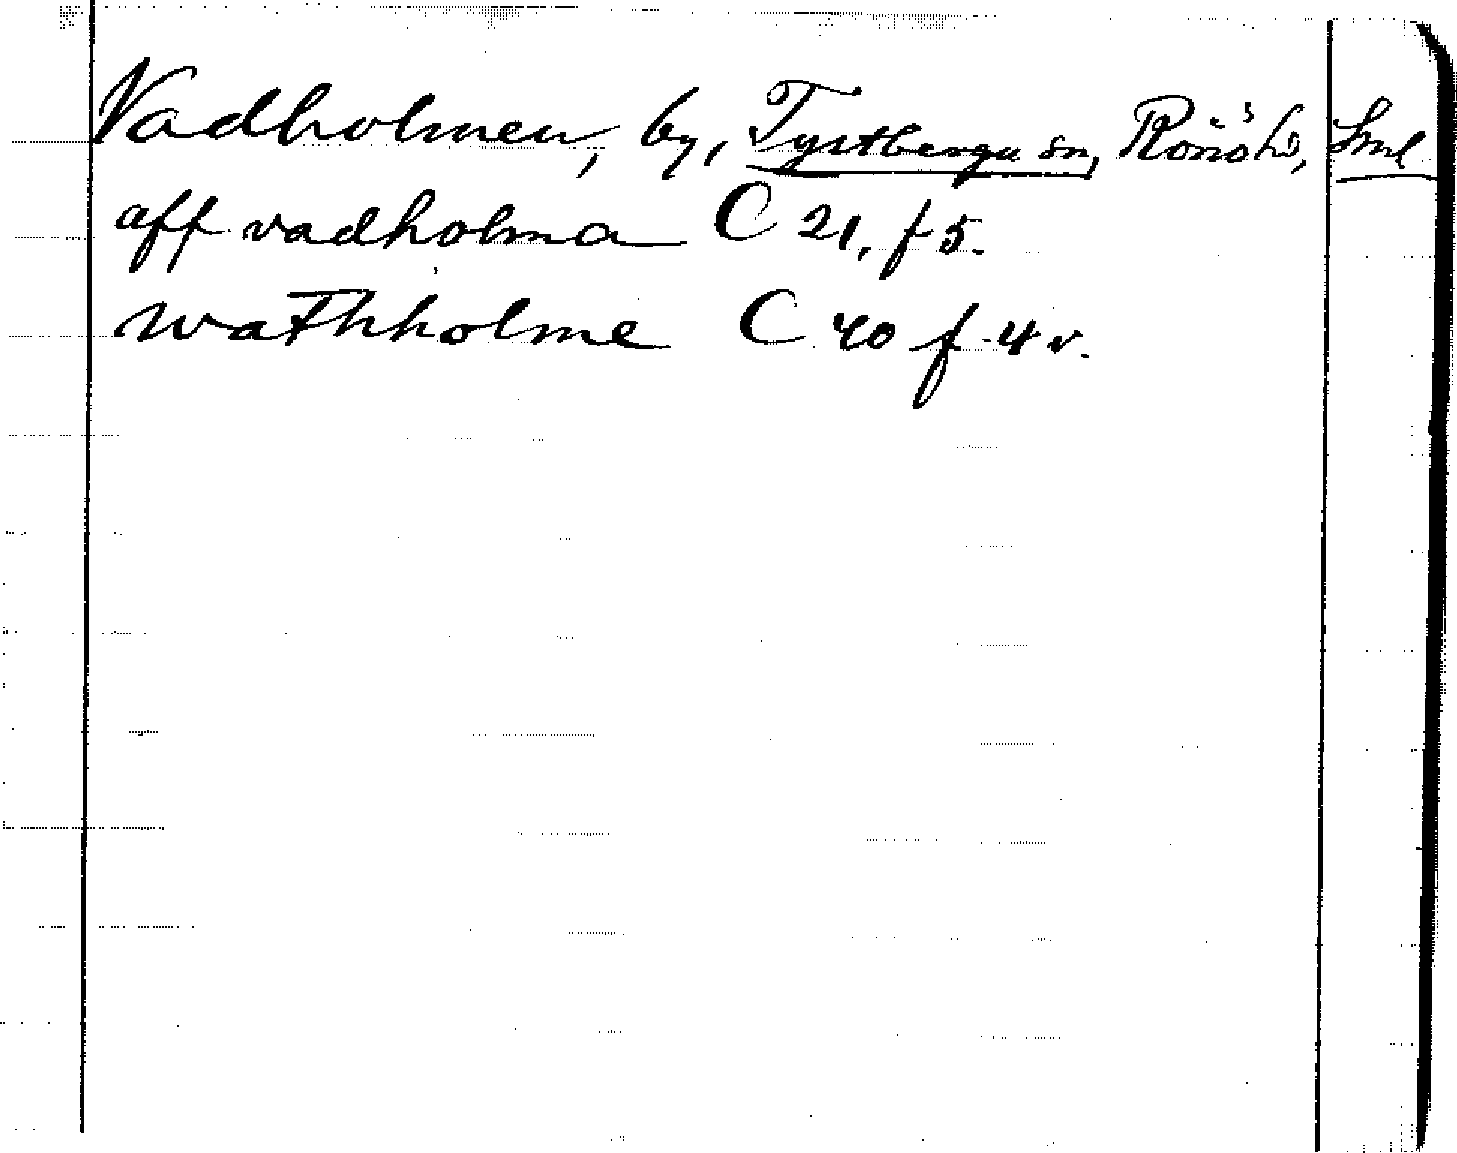 Vadholmen, by, Tystberga sn, Rönö hd, Sml
aff vadholma C 21, f 5.
Wathholme C 40 f. 4 v.